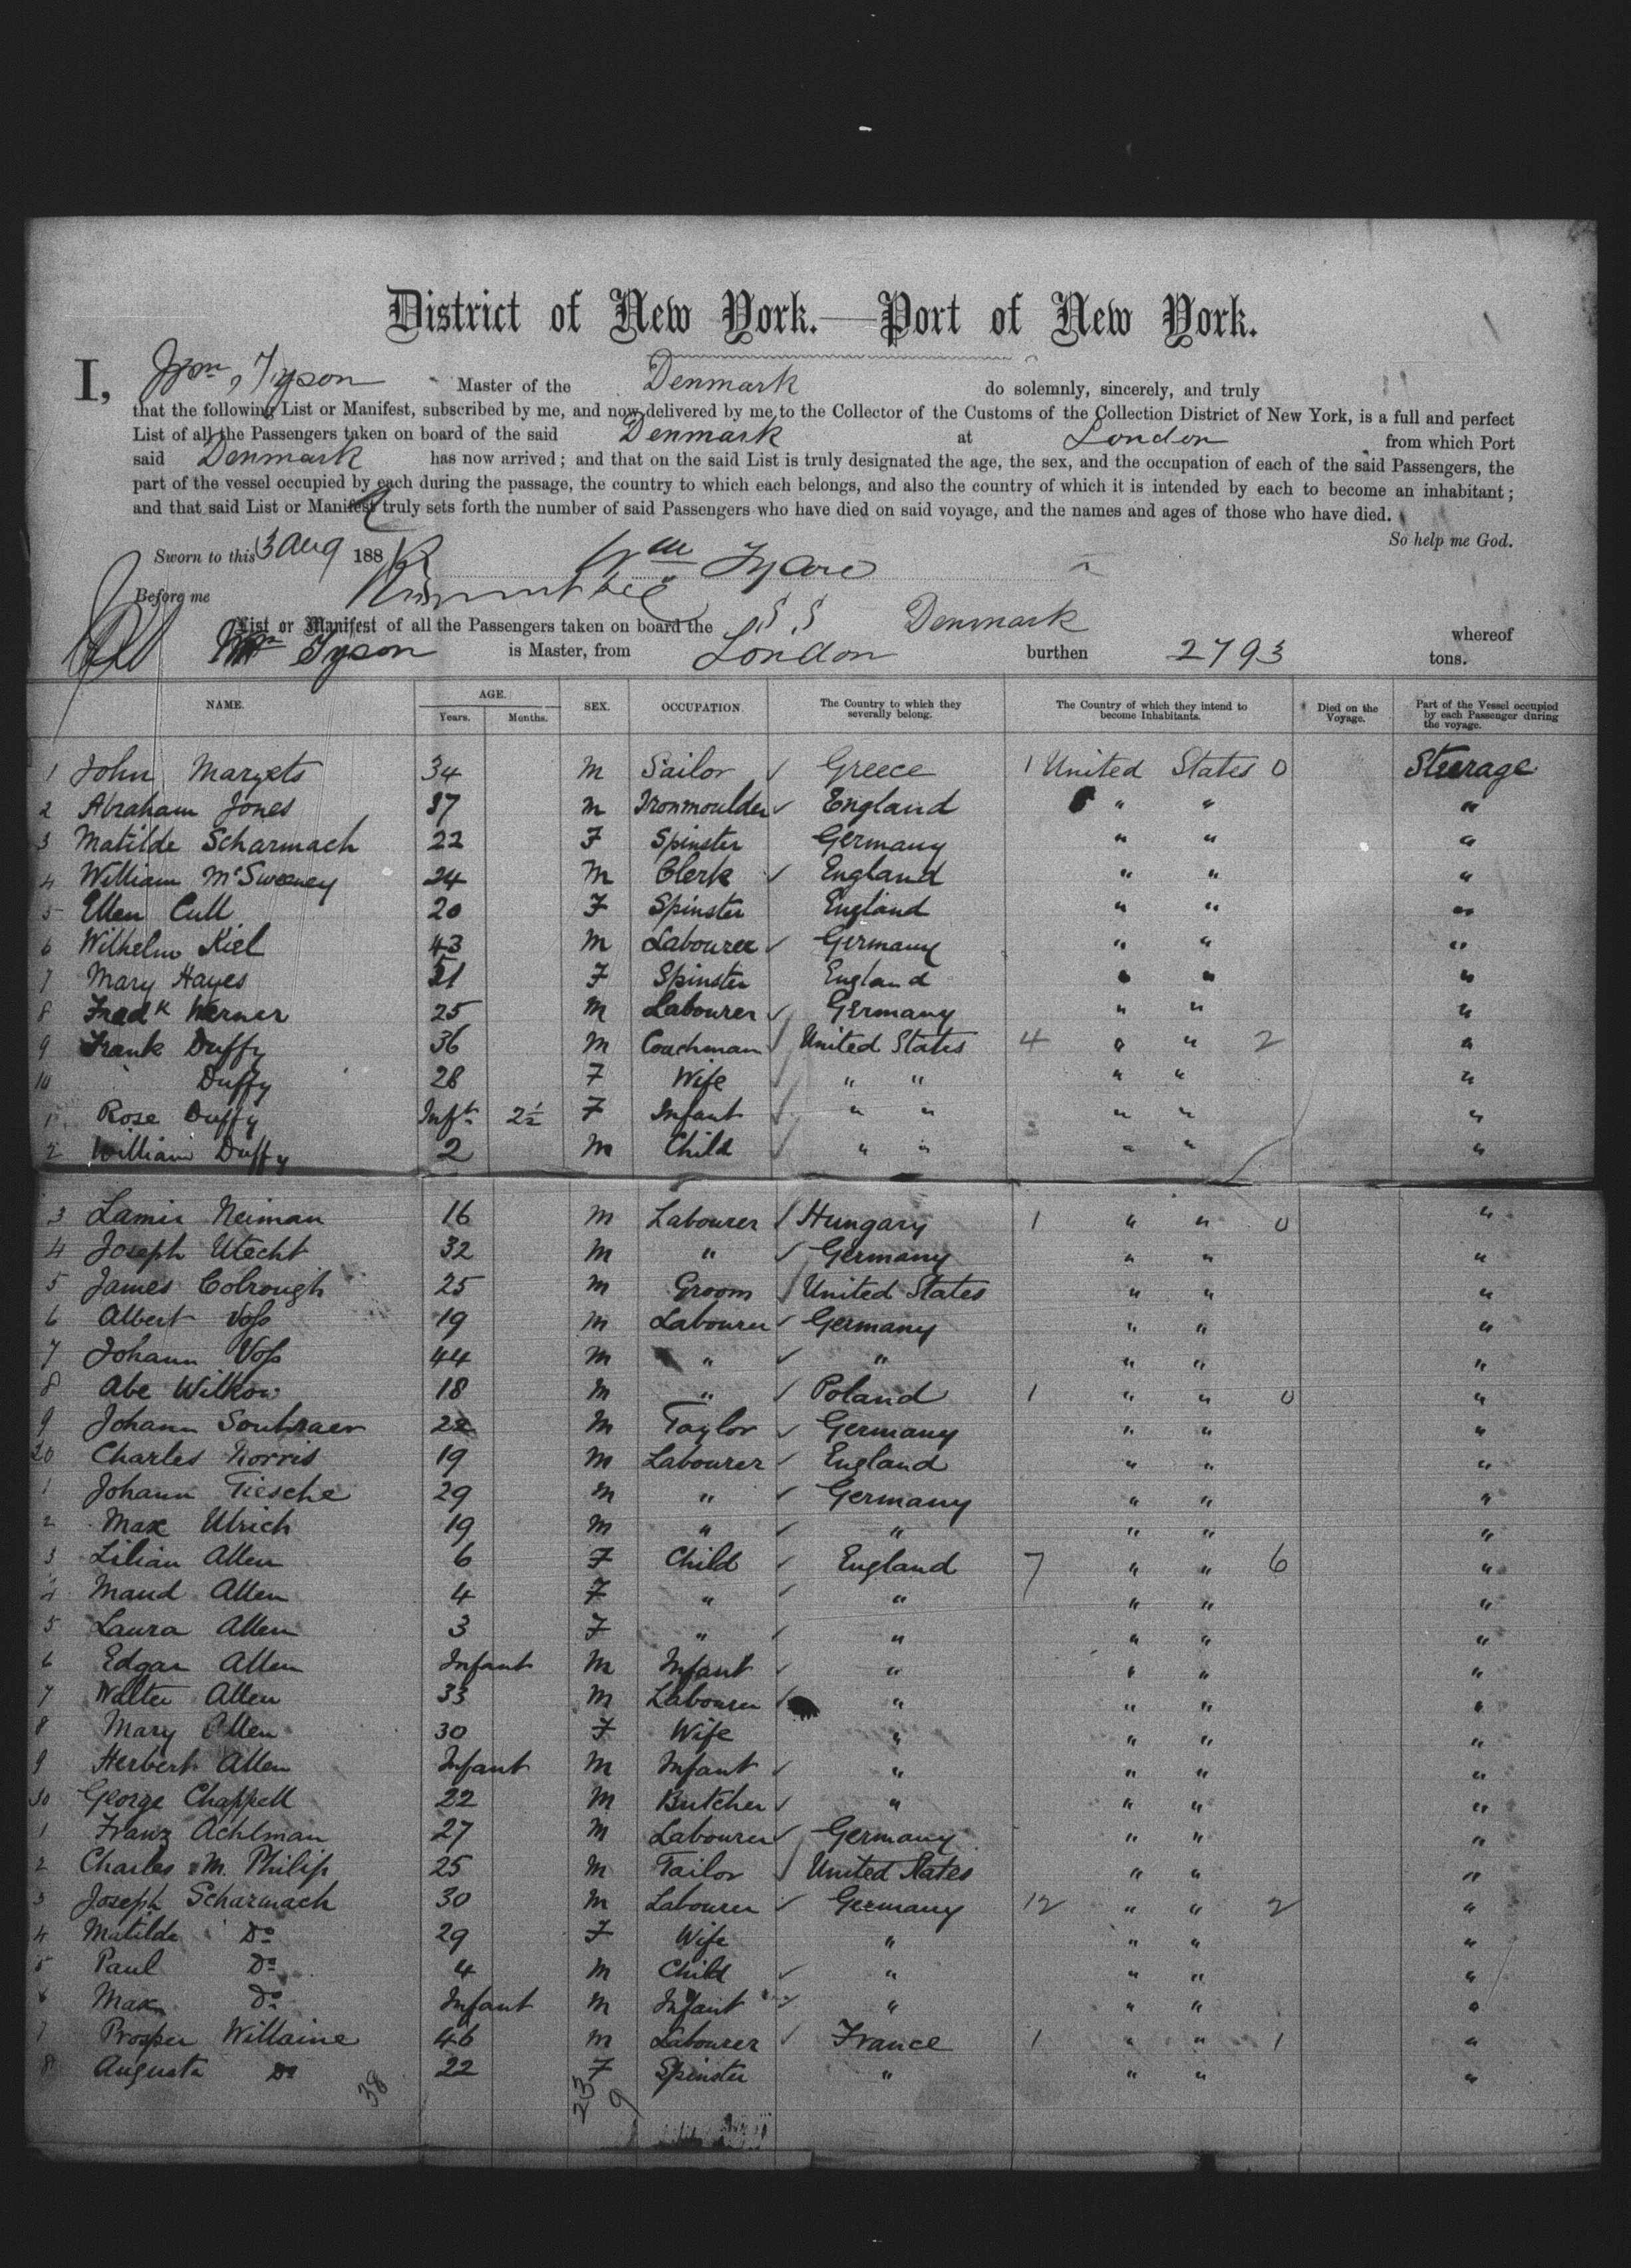 District of New York.—Port of New York.
I, Wm, Tyson Master of the Denmark do solemnly, sincerely, and truly
that the following List or Manifest, subscribed by me, and now delivered by me to the Collector of the Customs of the Collection District of New York, is a full and perfect
List of all the Passengers taken on board of the said Denmark at London from which Port
said Denmark has now arrived; and that on the said List is truly designated the age, the sex, and the occupation of each of the said Passengers, the
part of the vessel occupied by each during the passage, the country to which each belongs, and also the country of which it is intended by each to become an inhabitant;
and that said List or Manifest truly sets forth the number of said Passengers who have died on said voyage, and the names and ages of those who have died.
So help me God.
Sworn to this 3 Aug 188
Before me
List or Manifest of all the Passengers taken on board the S S Denmark whereof
Wm Tyson is Master, from London burthen 2793 tons.
NAME. AGE. SEX. OCCUPATION. The Country to which they severally belong. The Country of which they intend to become Inhabitants. Died on the Voyage. Part of the Vessel occupied by each Passenger during the voyage.
Years. Months.
1 John Margets 34 M Sailor ✓ Greece 1 United States 0 Steerage
2 Abraham Jones 37 M Ironmoulder ✓ England " " "
3 Matilde Scharmach 22 F Spinster Germany " " "
4 William McSweeney 24 M Clerk ✓ England " " "
5 Ellen Cull 20 F Spinster England " " "
6 Wilhelm Kiel 43 M Labourer ✓ Germany " " "
7 Mary Hayes 51 F Spinster England " " "
8 Fredk Werner 25 M Labourer ✓ Germany " " "
9 Frank Duffy 36 M Coachman ✓ United States 4 " " 2 "
10 Duffy 28 F Wife ✓ " " " " "
1 Rose Duffy Inft 2½ F Infant ✓ " " " " "
2 William Duffy 2 M Child ✓ " " " " "
3 Lamir Neiman 16 M Labourer ✓ Hungary 1 " " 0 "
4 Joseph Utecht 32 M " ✓ Germany " " "
5 James Colrough 25 M Groom ✓ United States " " "
6 Albert Voss 19 M Labourer ✓ Germany " " "
7 Johann Voss 44 M " ✓ " " " "
8 Abe Wilkow 18 M " ✓ Poland 1 " " 0 "
9 Johann 22 M Taylor ✓ Germany " " "
20 Charles Norris 19 M Labourer ✓ England " " "
1 Johann Tiesche 29 M " ✓ Germany " " "
2 Max Ulrich 19 M " ✓ " " " "
3 Lilian Allen 6 F Child ✓ England 7 " " 6 "
4 Maud Allen 4 F " ✓ " " " "
5 Laura Allen 3 F " ✓ " " " "
6 Edgar Allen Infant M Infant ✓ " " " "
7 Walter Allen 33 M Labourer ✓ " " " "
8 Mary Allen 30 F Wife " " " "
9 Herbert Allen Infant M Infant ✓ " " " "
30 George Chappell 22 M Butcher ✓ " " " "
1 Franz Achlman 27 M Labourer ✓ Germany " " "
2 Charles M. Philip 25 M Tailor ✓ United States " " "
3 Joseph Scharmach 30 M Labourer ✓ Germany 12 " " 2 "
4 Matilda Do 29 F Wife " " " "
5 Paul Do 4 M Child ✓ " " " "
6 Max Do Infant M Infant ✓ " " " "
7 Prosper Willaine 46 M Labourer ✓ France 1 " " 1 "
8 Augusta Do 22 F Spinster " " " "
38